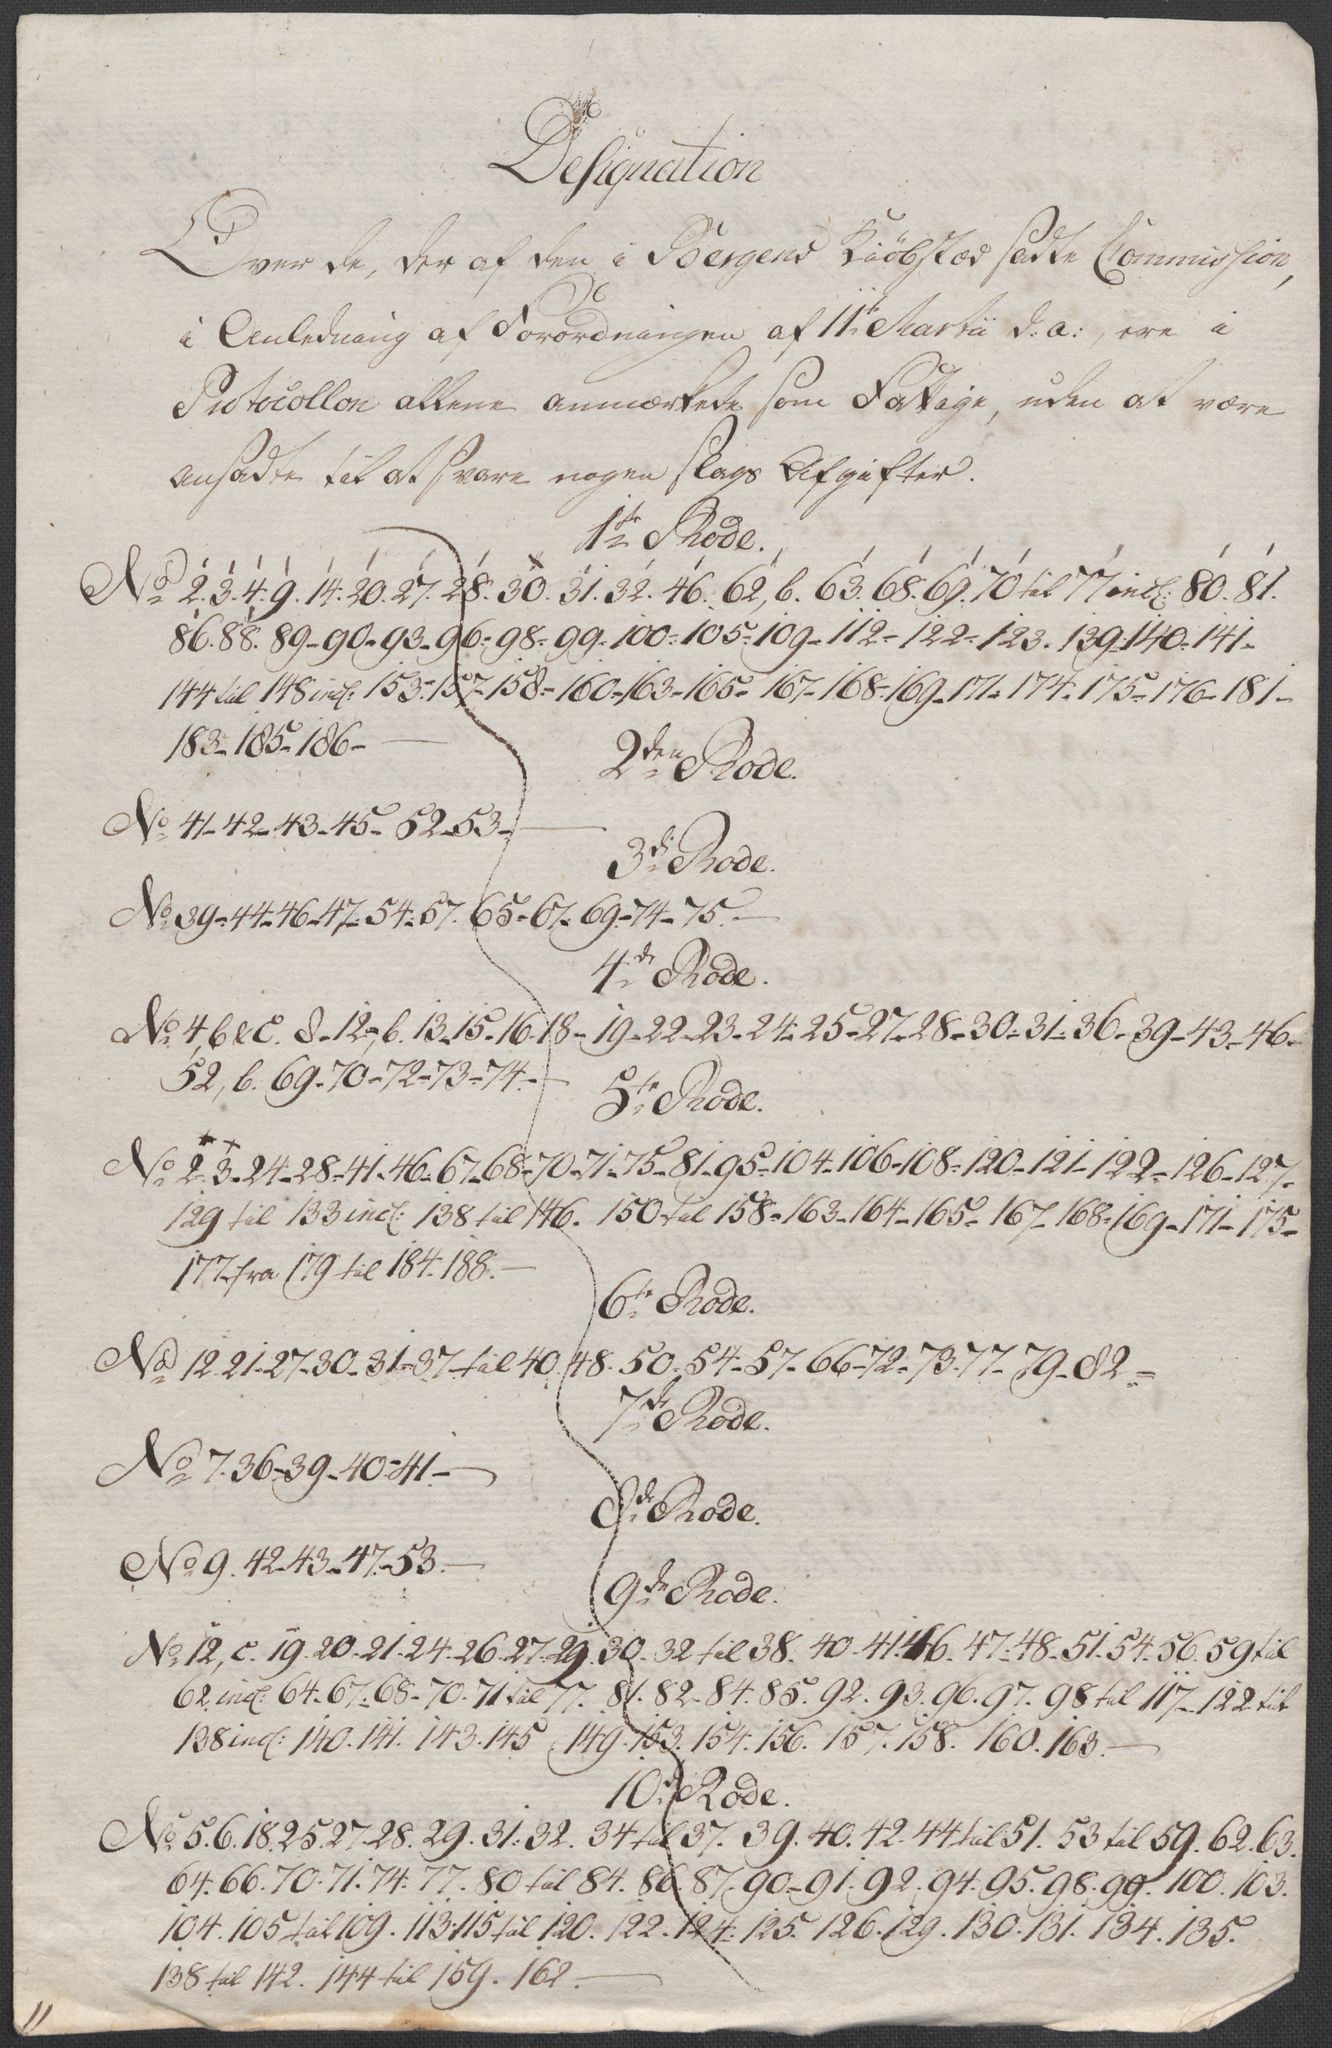 Designation
Over de, der af den i Bergens Kiöbstæd satte Commission,
i Anledning af Forordningen af 11te Martii d: a:, ere i
Protocollen allene anmærkede som Fattige, uden at være
ansadte til at svare nogen slags Afgifter.
1te Rode.
No 2. 3. 4. 9. 14. 20. 27. 28. 30. 31. 32. 46. 62, b. 63. 68. 69. 70 til 77 incl: 80. 81.
86. 88. 89- 90- 93- 96- 98- 99- 100- 105- 109- 112- 122- 123. 139- 140- 141-
144 til 148 incl: 153- 157- 158- 160- 163- 165- 167- 168- 169- 171- 174- 175- 176- 181-
183- 185- 186-
2den Rode.
No 41- 42- 43- 45- 52- 53-
3de Rode.
No 39- 44- 46- 47- 54- 57. 65- 67- 69- 74- 75.
4de Rode.
No 4, b & c. 8- 12-, b. 13- 15- 16- 18- 19- 22- 23- 24- 25- 27- 28- 30- 31- 36- 39- 43- 46-
52, b. 69- 70- 72- 73- 74-
5te Rode.
No 2- 3- 24- 28- 41- 46- 67- 68- 70- 71- 75- 81- 95- 104- 106- 108- 120- 121- 122- 126- 127-
129 til 133 incl: 138 til 146. 150 til 158- 163- 164- 165- 167- 168- 169- 171- 175-
177- fra 179 til 184. 188.
6te Rode.
No 12. 21- 27- 30- 31- 37- til 40. 48. 50. 54- 57- 66- 72- 73- 77- 79- 82-
7de Rode.
No 7. 36- 39- 40- 41-
8de Rode.
No 9. 42- 43- 47- 53.
9de Rode.
No 12, c. 19. 20- 21- 24- 26- 27- 29. 30- 32 til 38. 40. 41. 46. 47- 48- 51. 54. 56. 59 til
62 incl: 64. 67. 68- 70. 71 til 77. 81. 82- 84. 85. 92. 93. 96. 97. 98 til 117- 122 til
138 incl: 140. 141. 143. 145 149. 153. 154. 156. 157. 158. 160. 163.
10de Rode.
No 5. 6. 18. 25. 27. 28. 29. 31. 32. 34 til 37. 39. 40. 42. 44 til 51. 53 til 59. 62. 63.
64. 66. 70. 71. 74. 77. 80 til 84. 86. 87. 90- 91. 92. 94. 95. 98. 99. 100. 103.
104. 105 til 109. 113. 115 til 120. 122. 124. 125. 126. 129. 130. 131. 134. 135.
138 til 142. 144 til 159. 162.
11